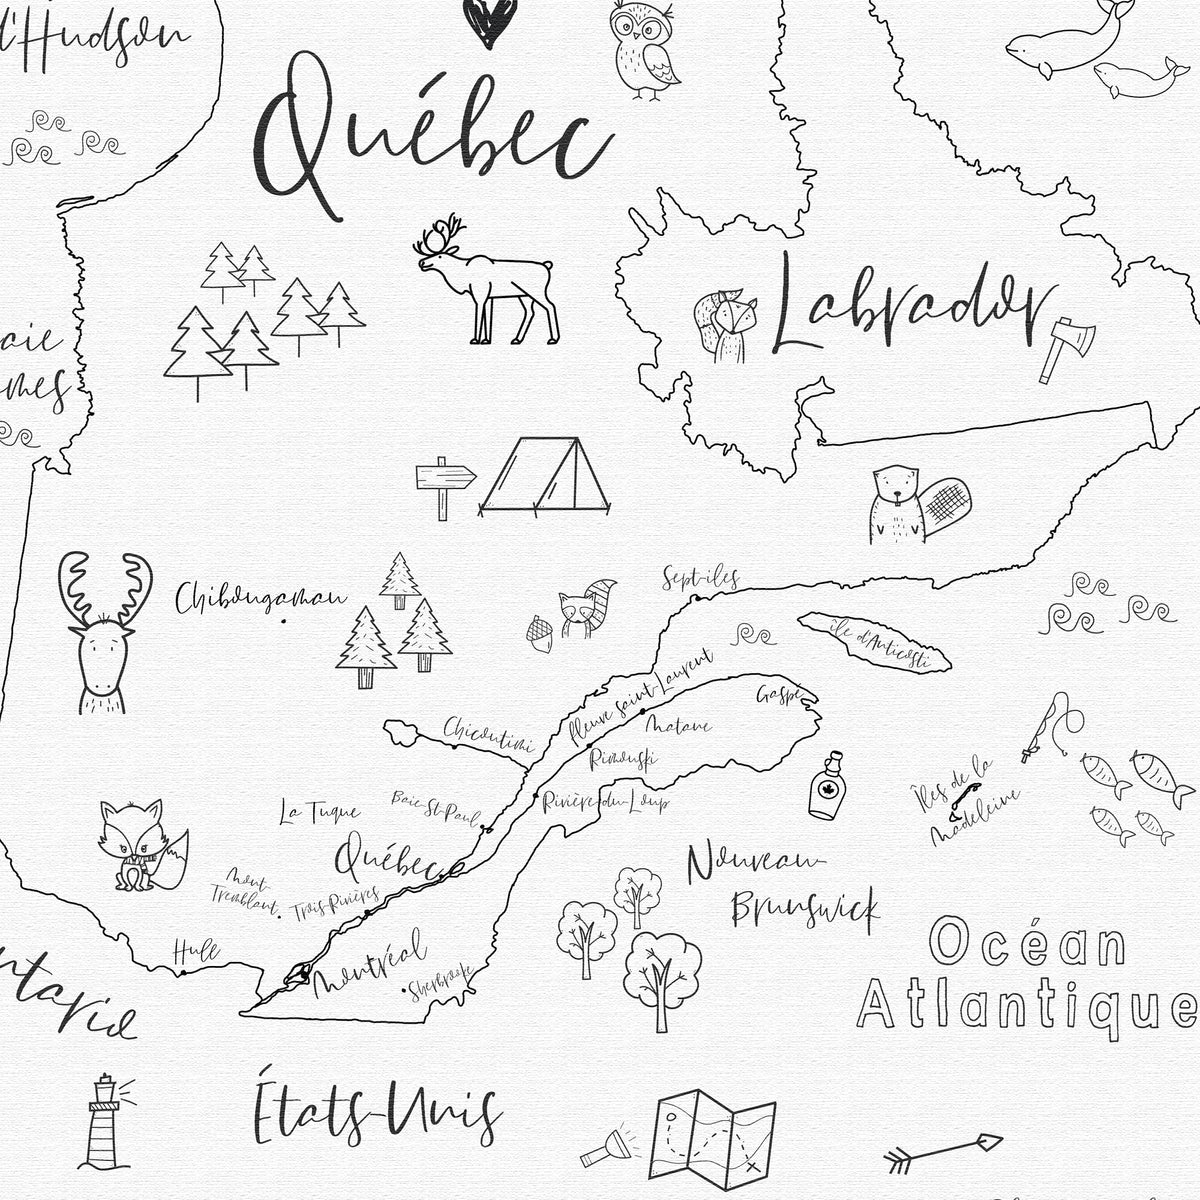 d'Hudson
Québec
Labrador
Chibougamau
Sept-îles
île d'Anticosti
fleuve Saint-Laurent
Gaspé
Matane
Chicoutimi
Rimouski
Rivière-du-Loup
Baie-St-Paul
La Tuque
Îles de la
Madeleine
Québec
Mont-
Tremblant
Trois-Rivières
Nouveau-
Brunswick
Hull
Montréal
Sherbrooke
Océan
Atlantique
États-Unis